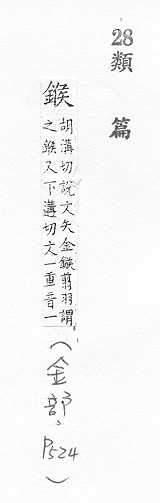 28
類篇
鍭
胡溝切說文矢金鍭翦羽謂
之鍭又下遘切文一重音一
(金部、P524)